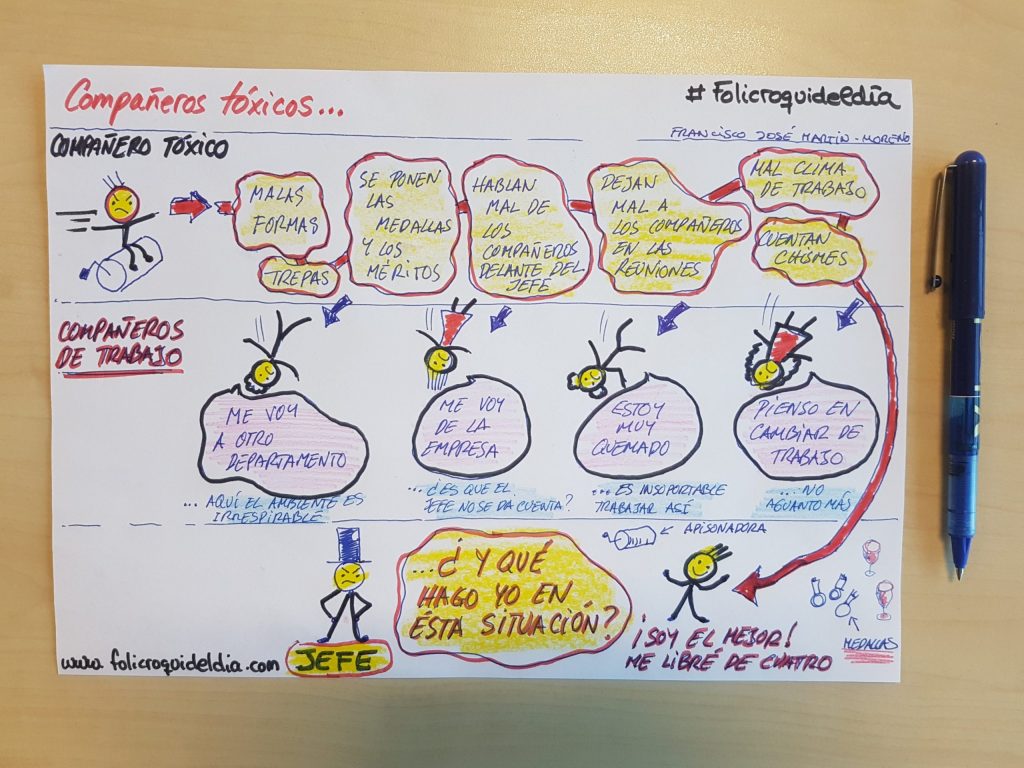 Compañeros tóxicos...
#Folicroquideldía
FRANCISCO JOSÉ MARTIN-MORENO
COMPAÑERO TÓXICO
MALAS
FORMAS
TREPAS
SE PONEN
LAS
MEDALLAS
Y LOS
MÉRITOS
HABLAN
MAL DE
LOS
COMPAÑEROS
DELANTE DEL
JEFE
DEJAN
MAL A
LOS COMPAÑEROS
EN LAS
REUNIONES
MAL CLIMA
DE TRABAJO
CUENTAN
CHISMES
COMPAÑEROS
DE TRABAJO
ME VOY
A OTRO
DEPARTAMENTO
... AQUÍ EL AMBIENTE ES
IRRESPIRABLE
ME VOY
DE LA
EMPRESA
...¿ES QUE EL
JEFE NO SE DA CUENTA?
ESTOY
MUY
QUEMADO
... ES INSOPORTABLE
TRABAJAR ASÍ
PIENSO EN
CAMBIAR DE
TRABAJO
... NO
AGUANTO MÁS
JEFE
...¿Y QUÉ
HAGO YO EN
ÉSTA SITUACIÓN?
APISONADORA
¡SOY EL MEJOR!
ME LIBRÉ DE CUATRO
MEDALLAS
www.folicroquideldia.com